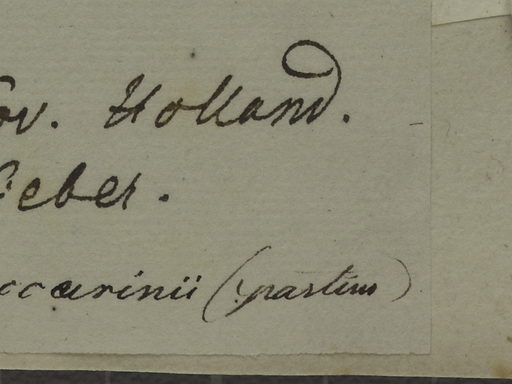 ov. Holland.
ieber.
ccarinii (partim)